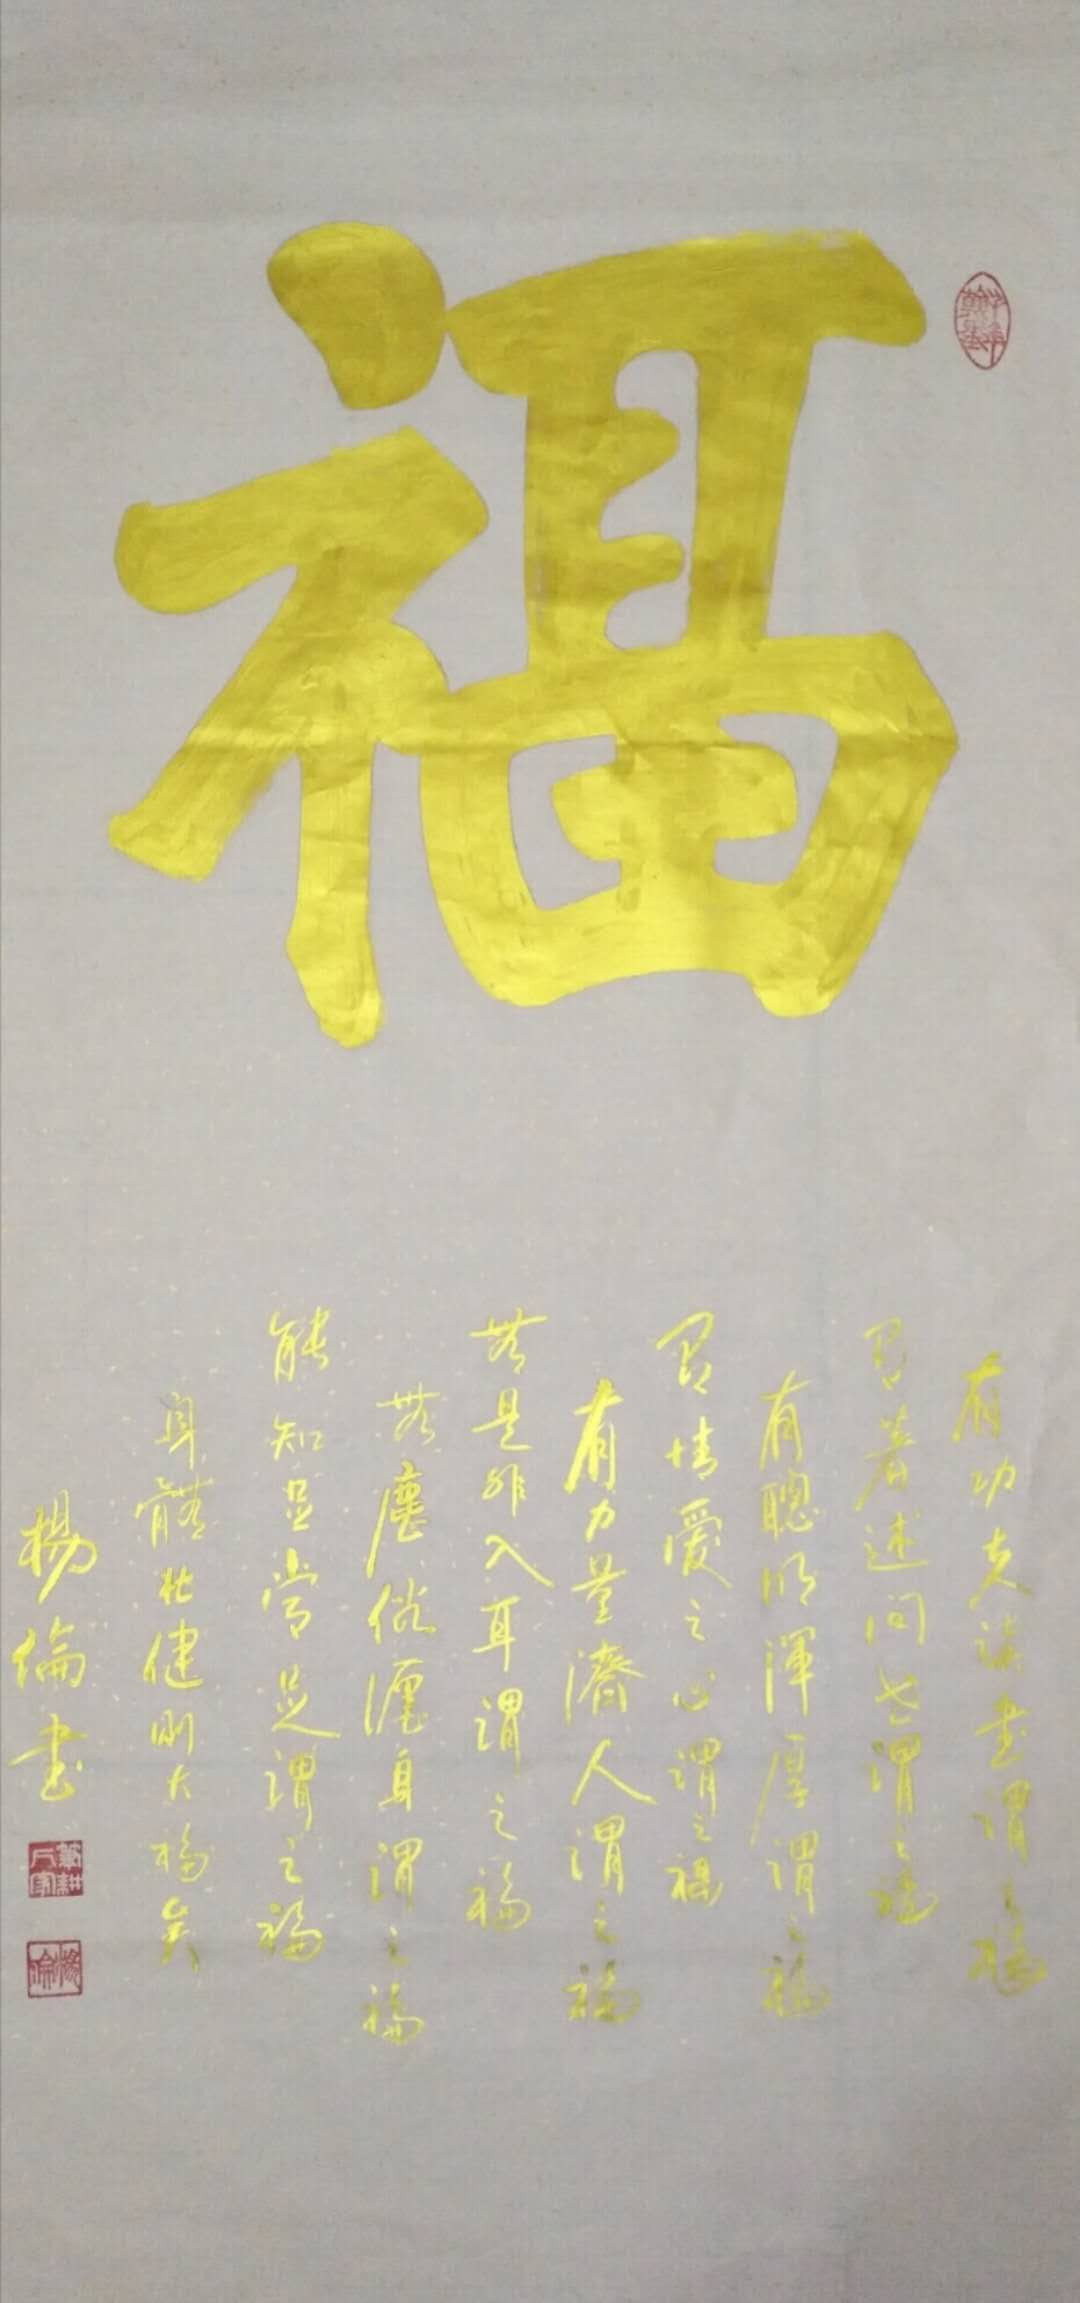 福
有功夫讀書謂之福
有著述問世謂之福
有聰明渾厚謂之福
有情愛之心謂之福
有力量濟人謂之福
無是非入耳謂之福
無塵俗纏身謂之福
能知足常足謂之福
身體壯健則大福矣
楊倫書
筆耕人家
楊倫